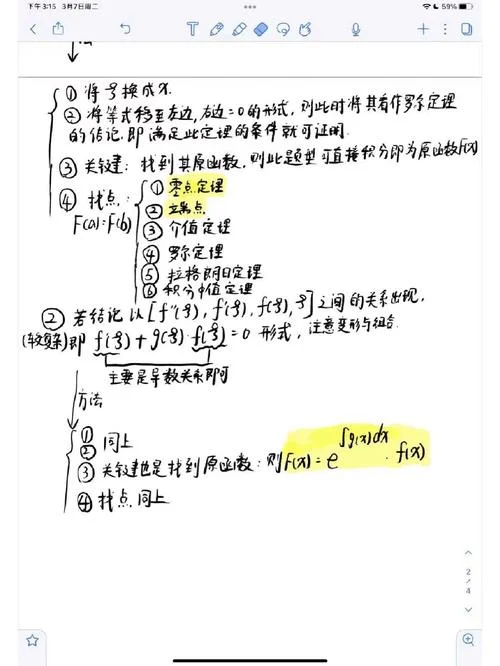 下午3:15 3月7日周二
59%
方法
① 将ξ换成x.
② 将等式移至左边,右边=0的形式,则此时将其看作罗尔定理
的结论.即满足此定理的条件就可证明.
③ 关键:找到其原函数,则此题型可直接积分即为原函数F(x)
④ 找点:
F(a)=F(b)
① 零点定理
② 立端点.
③ 介值定理
④ 罗尔定理
⑤ 拉格朗日定理
⑥ 积分中值定理
② 若结论以[f''(ξ),f'(ξ),f(ξ),ξ]之间的关系出现,
(较复杂)即 f'(ξ)+g(ξ)·f(ξ)=0 形式,注意变形与组合.
主要是导数关系即可
方法
① 同上
②
③ 关键也是找到原函数:则F(x)=e^∫g(x)dx·f(x)
④ 找点.同上
2
/
4